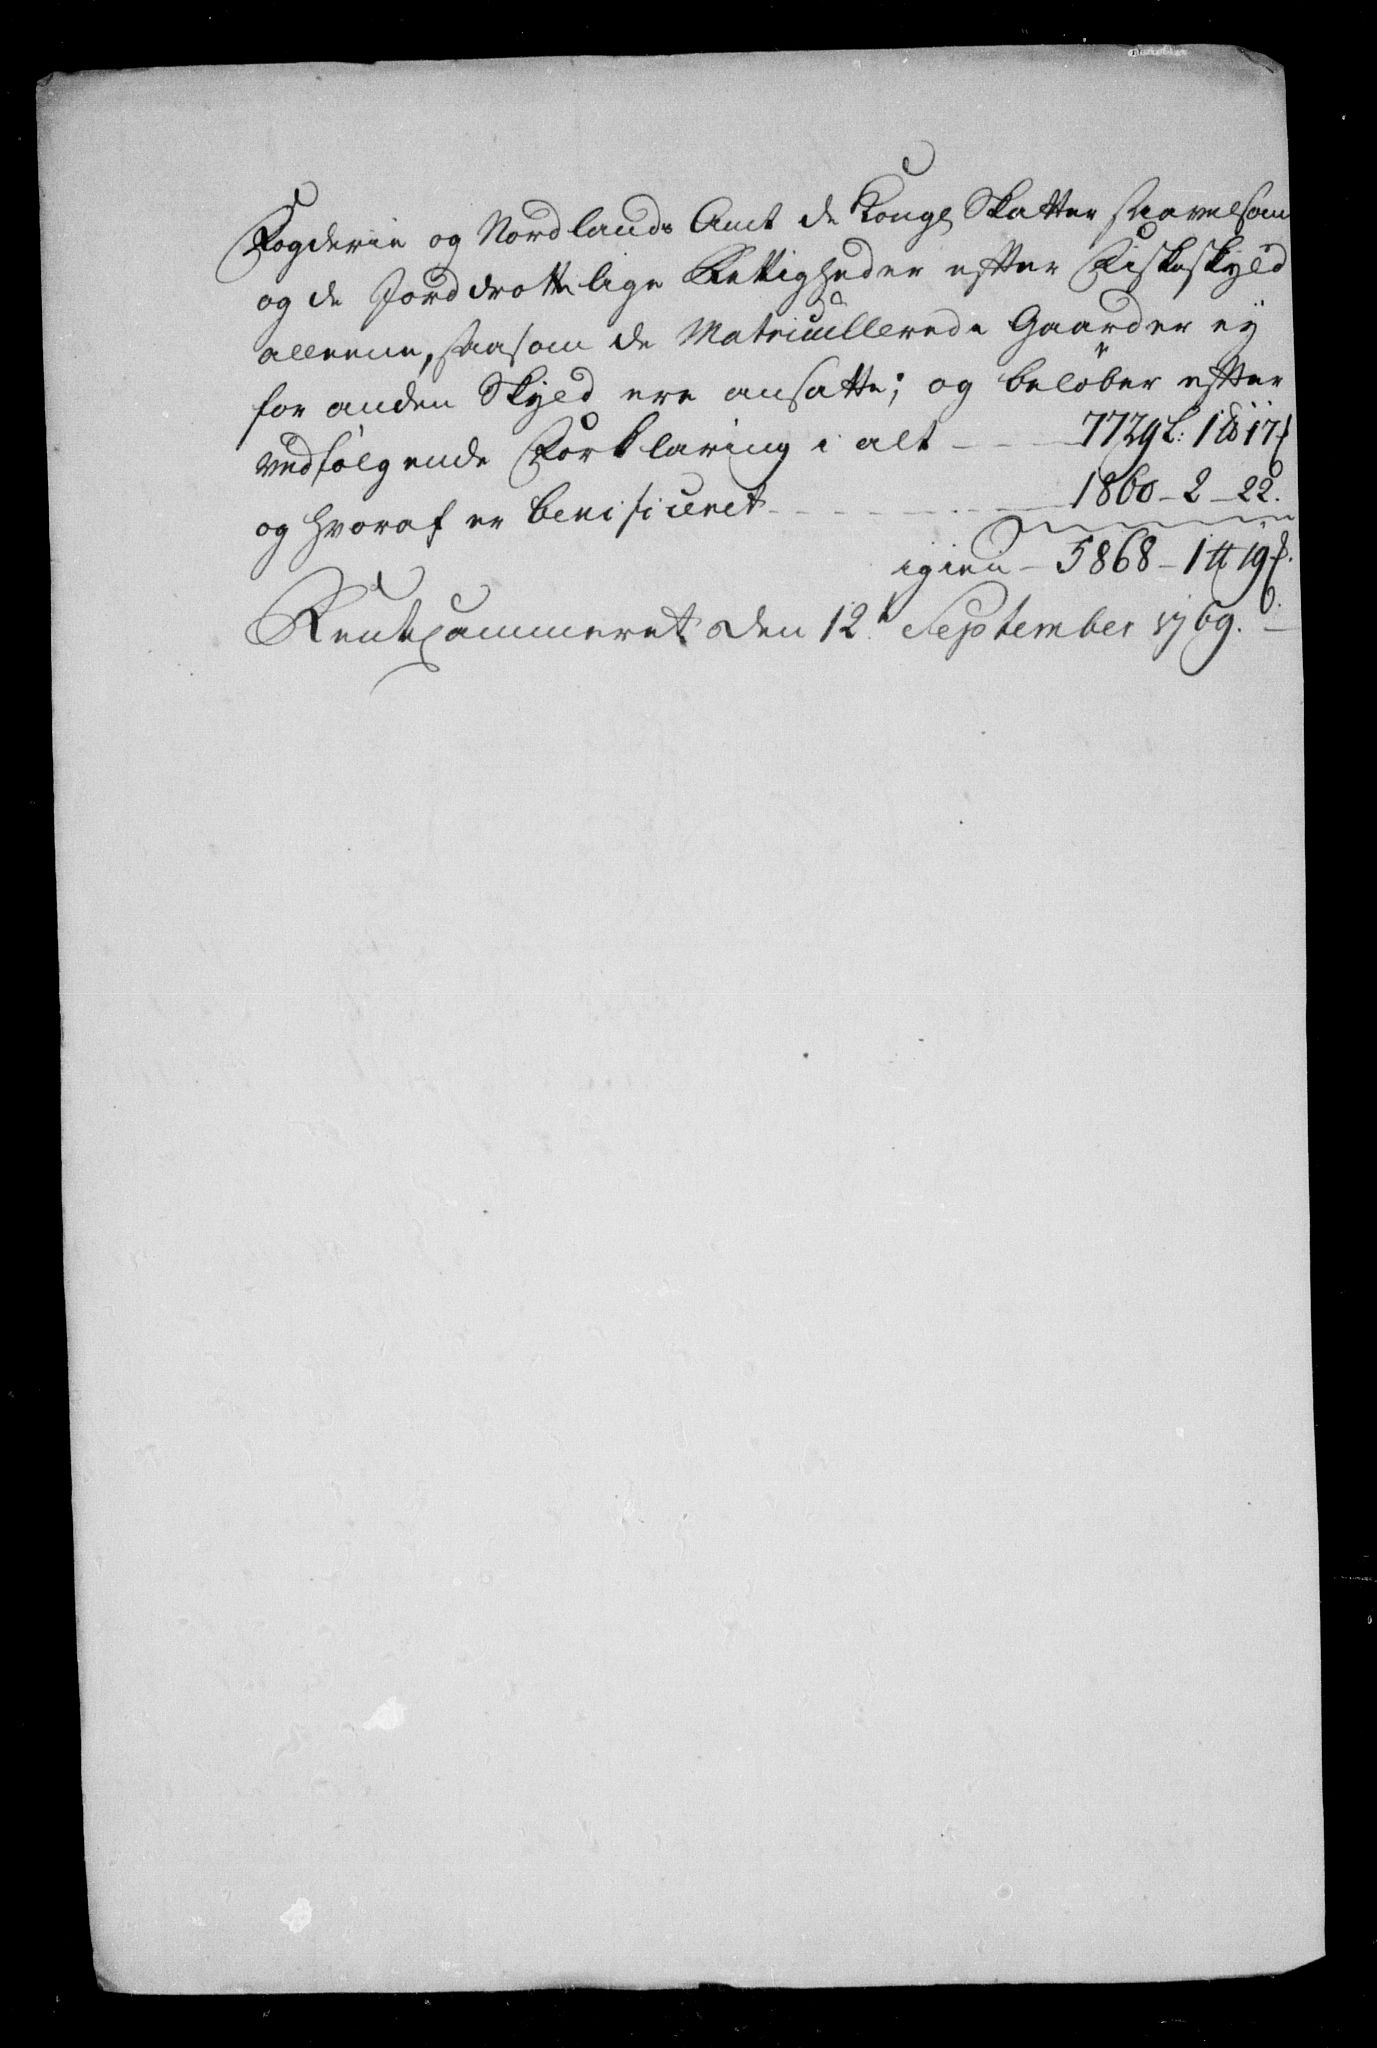 Fogderie og Nordlands Amt de Kongl Skatter saavelsom
og de Jorddrottelige Rettigheder efter Fiskeskyld
alleene, saasom de Matriculerede Gaarder ey
for anden Skyld ere ansatte; og beløber efter
vedfølgende Forklaring i alt — 7729 L: 1 ℔ 17
og hvoraf er benificeret — 1860 — 2 — 22.
igien — 5868 — 1 ℔ 19
Rentecammeret den 12t September 1769.